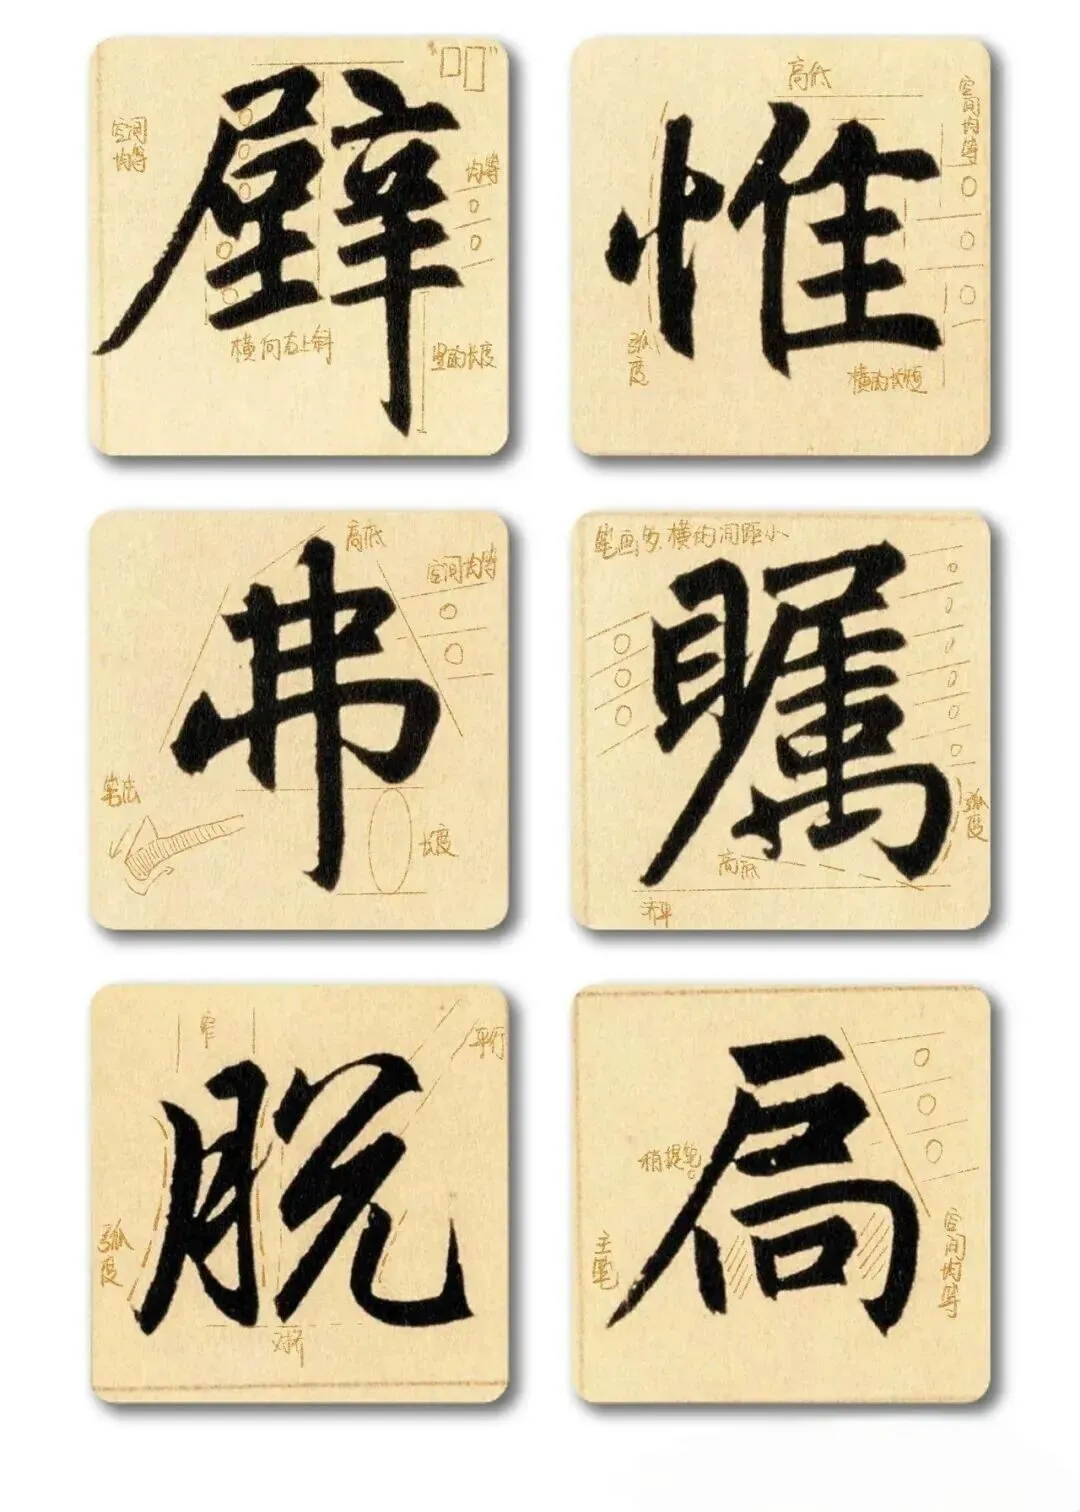 空间
均等
均等
壁
横向右上斜
竖的长度
高低
空间均等
惟
弧度
横的长短
高低
空间均等
弗
笔法
长度
笔画多,横的间距小
瞩
弧度
高低
窄
平行
脱
弧度
对齐
稍提笔
扃
主笔
空间均等